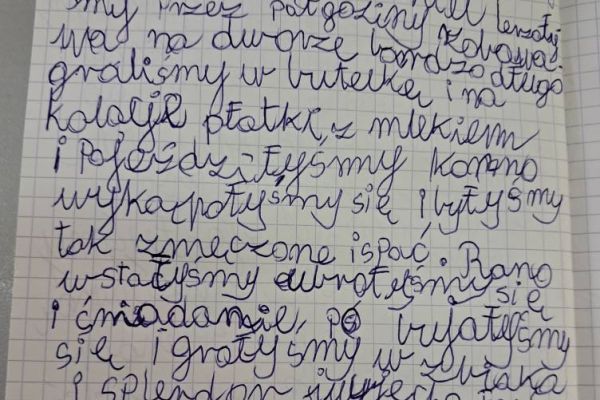 my przez półgodziny
wa na dworze bardzo długo
graliśmy w butelkę i na
kolacje płatki z mlekiem
i pojeździłyśmy konno
wykąpołyśmy się i byłyśmy
tak zmeczone ispać. Rano
wstałyśmy ubrałyśmy się
i śniadanie, po
się i grałyśmy w zwiaka
i splendor